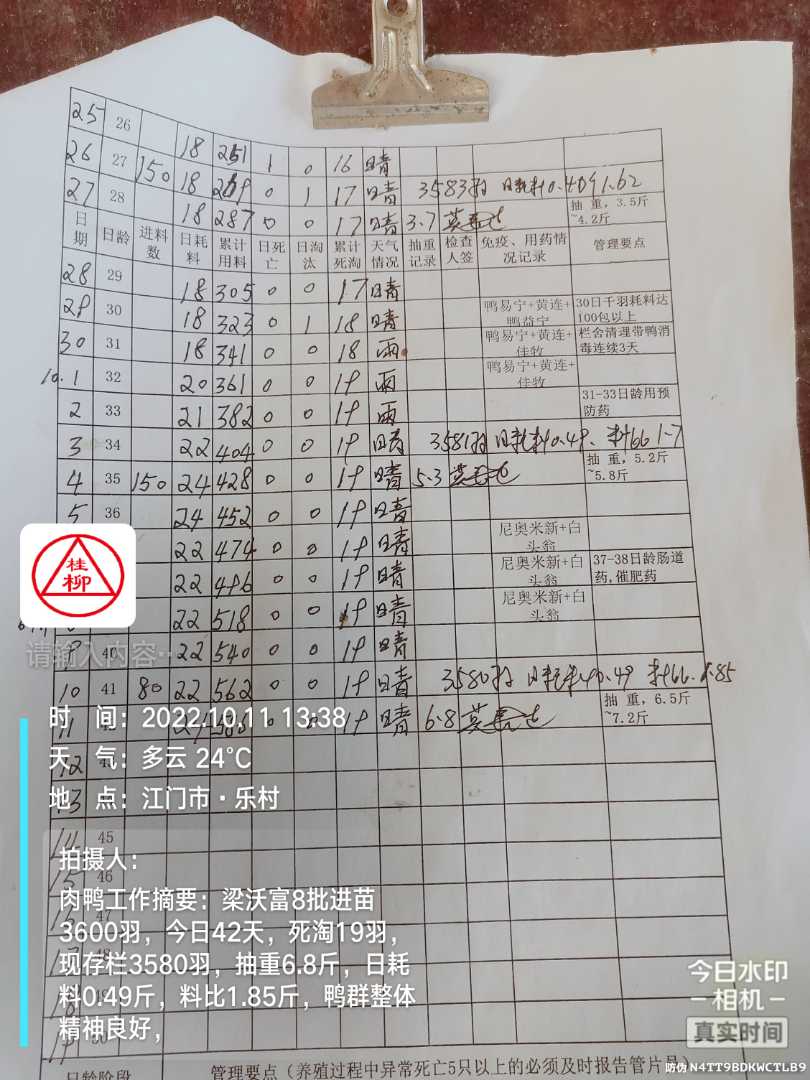 25 26 18 251 1 0 16 晴
26 27 150 18 269 0 1 17 晴 3583羽 日耗料0.409 1.62
27 28 18 287 0 0 17 晴 3.7 抽 重,3.5斤~4.2斤
日期 日龄 进料数 日耗料 累计用料 日死亡 日淘汰 累计死淘 天气情况 抽重记录 检查人签 免疫、用药情况记录 管理要点
28 29 18 305 0 0 17 晴
29 30 18 323 0 1 18 晴 鸭易宁+黄连+鸭益宁 30日千羽耗料达100包以上
30 31 18 341 0 0 18 雨 鸭易宁+黄连+佳牧 栏舍清理带鸭消毒连续3天
10.1 32 20 361 0 0 19 雨 鸭易宁+黄连+佳牧
2 33 21 382 0 0 19 雨 31-33日龄用预防药
3 34 22 404 0 0 19 晴 3581羽 日耗料0.49、料66 1.7
4 35 150 24 428 0 0 19 晴 5.3 抽 重,5.2斤~5.8斤
5 36 24 452 0 0 19 晴
22 474 0 0 19 晴 尼奥米新+白头翁
22 496 0 0 19 晴 尼奥米新+白头翁 37-38日龄肠道药,催肥药
22 518 0 0 19 晴 尼奥米新+白头翁
9 40 22 540 0 0 19 晴
10 41 80 22 562 0 0 19 晴 3580羽 日耗料0.49 料66 1.85
11 24 586 0 0 19 晴 6.8 抽 重,6.5斤~7.2斤
12
13
14 45
15 46
16 47
17 48
18 49
19 50
日龄阶段 管理要点(养殖过程中异常死亡5只以上的必须及时报告管片员)
桂柳
请输入内容…
时 间:2022.10.11 13:38
天 气:多云 24℃
地 点:江门市·乐村
拍摄人:
肉鸭工作摘要:梁沃富8批进苗
3600羽,今日42天,死淘19羽,
现存栏3580羽,抽重6.8斤,日耗
料0.49斤,料比1.85斤,鸭群整体
精神良好,
今日水印
相机
真实时间
防伪 N4TT9BDKWCTLB9